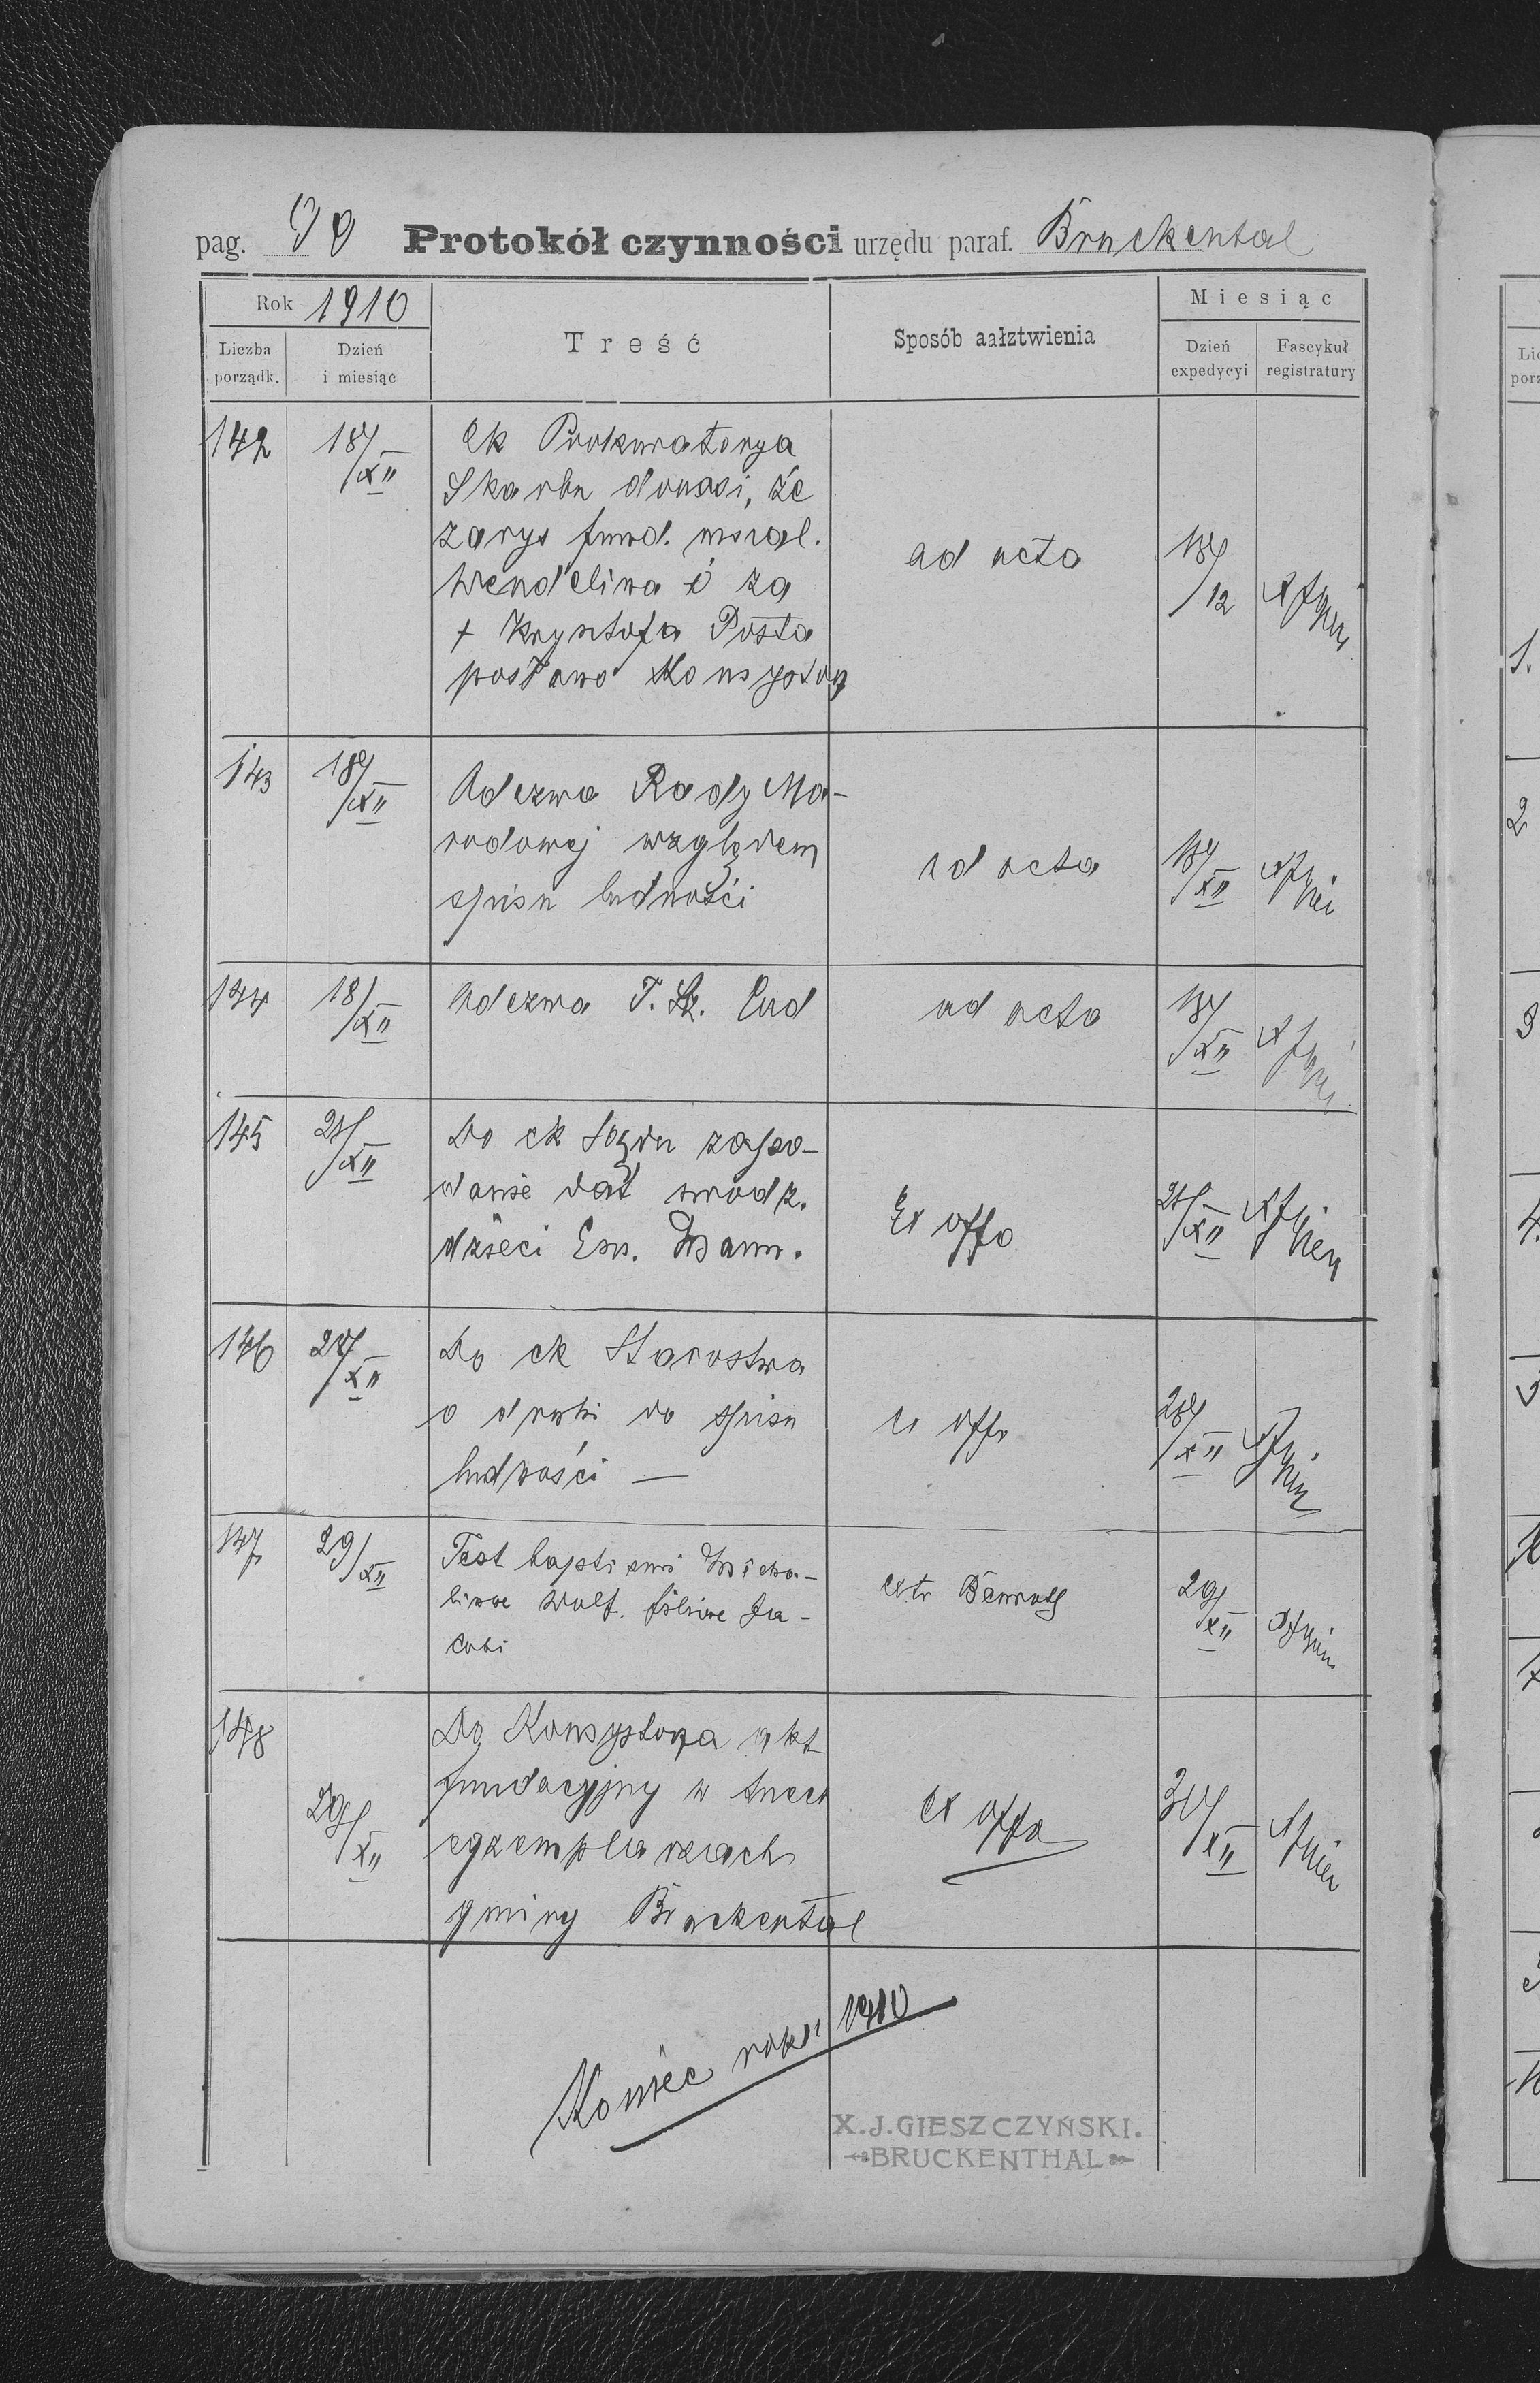 pag. 90 Protokół czynności urzędu paraf. Bruckental
Rok 1910
Liczba porządk.
Dzień i miesiąc
Treść
Sposób aałztwienia
Miesiąc
Dzień expedycyi
Fascykuł registratury
142 18/XII Ck Prokuratorya
Skarbu donosi, że
zarys fund.
Wendelina i za
+ Krysztofa Posta
ad acta 18/12
143 18/XII Odezwa Rady Na-
rodowej względem
spisu ludności
ad acta 18/XII
144 18/XII Odezwa T. Lud
ad acta 18/XII
145 21/XII Do ck Sądu zapo-
danie dat urodz.
dzieci
Ex offo 21/XII
146 28/XII Do ck Starostwa
o druki do spisu
ludności —
ex offo 28/XII
147 29/XII Test baptismi Micha-
linae Wolf. filiae Ja-
cobi
29/XII
148 29/XII Do Konsystorza akt
fundacyjny w trzech
egzemplarzach
gminy Bruckental
ex offo 30/XII
Koniec roku 1910
X.J.GIESZCZYŃSKI.
BRUCKENTHAL